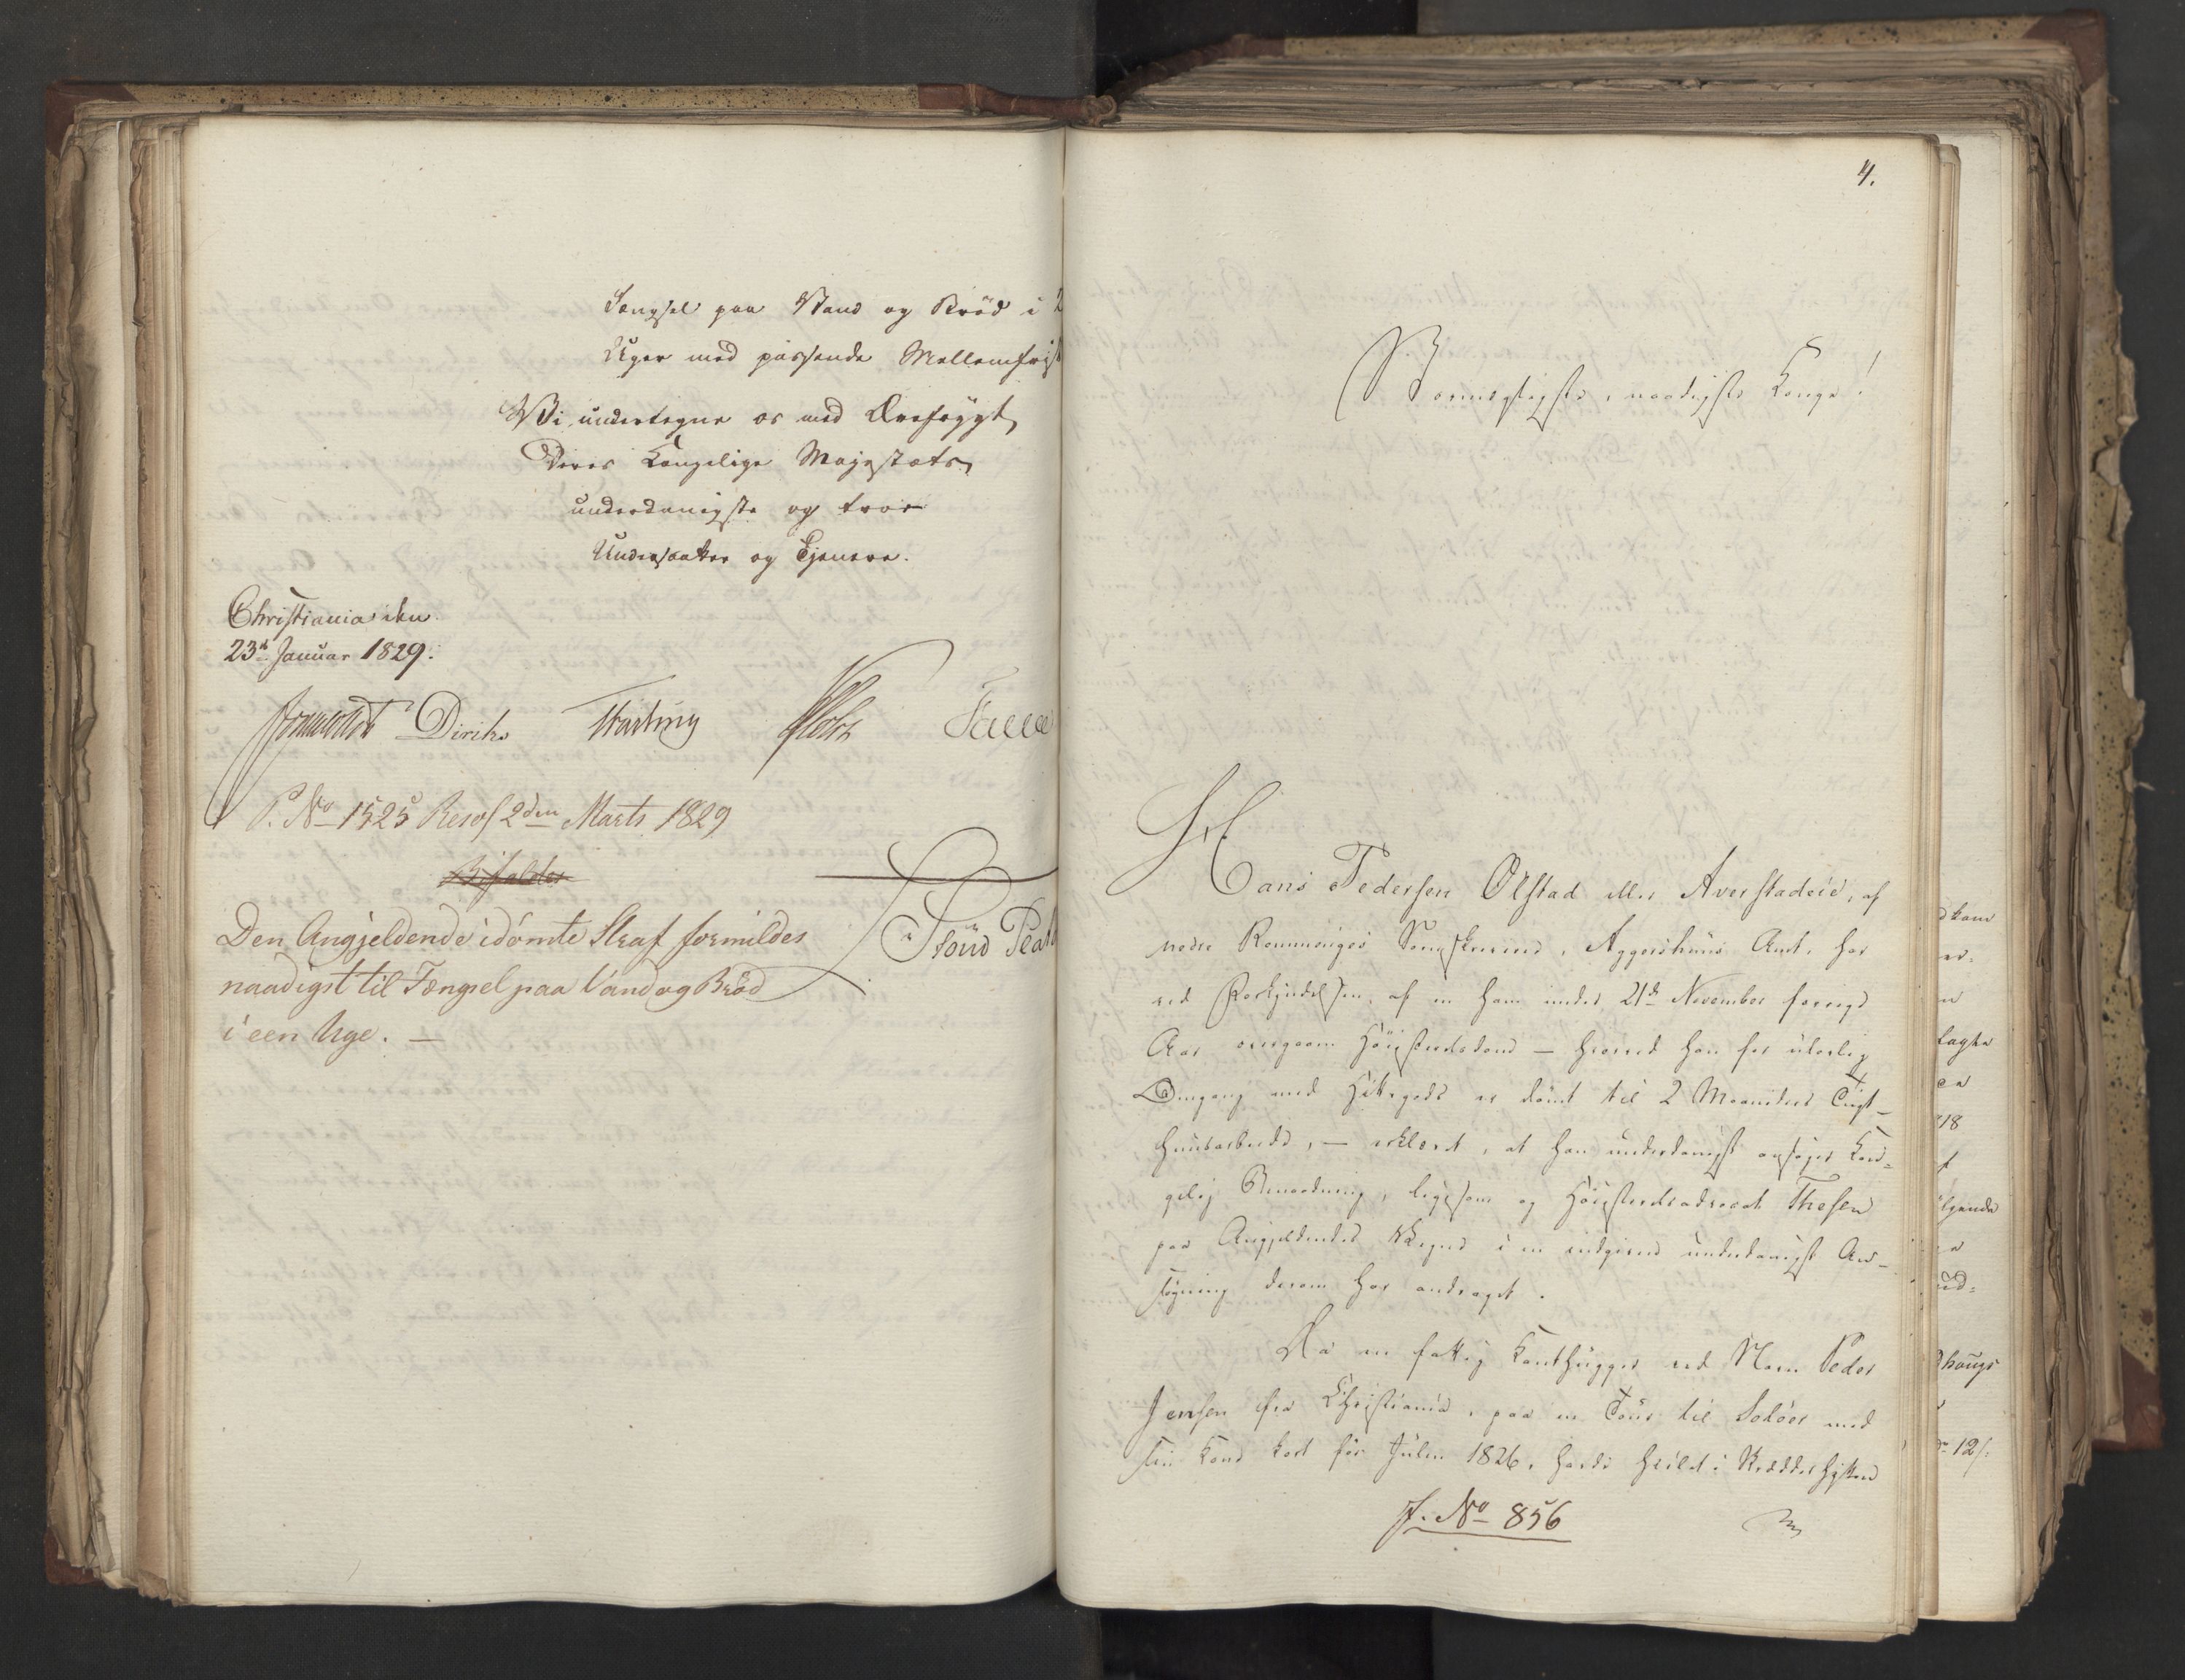 Fængsel paa Vand og Brød i 2
Uger med passende Mellemfrist
Vi undertegne os med Ærefrygt,
Deres Kongelige Majestæts
underdanigste og troe
Undersaatter og Tjenere.
Christiania den
23d Januar 1829.
Diriks
P. No 1525 Resol 2den Marts 1829
Bifaldes
Den Angjeldende idömte Straf formildes
naadigst til Fængsel paa Vand og Bröd
i een Uge. —
4.
Stormægtigste, naadigste Konge!
Hans Pedersen Olstad eller Averstadeie, af
nedre Rommeriges Sorenskriverie, Aggershuus Amt, har
ved Forkyndelsen af en ham under 21de November forrige
Aar overgaaen Höiesteretsdom — hvorved han for ulovlig
Omgang med Hittegods er dömt til 2 Maaneders Tugt-
huusarbeide, — erklæret, at han underdanigst ansöger Kon-
gelig Benaadning, ligesom og Höiesteretsadvocat Thesen
paa Angjeldendes Vegne i en indgiven underdanigst An-
søgning derom har andraget.
Da en fattig Kandhugger ved Navn Peder
Jensen fra Christiania, paa en Tour til Solöer med
sin Kone kort för Julen 1826, havde hvilet i
J. No 856